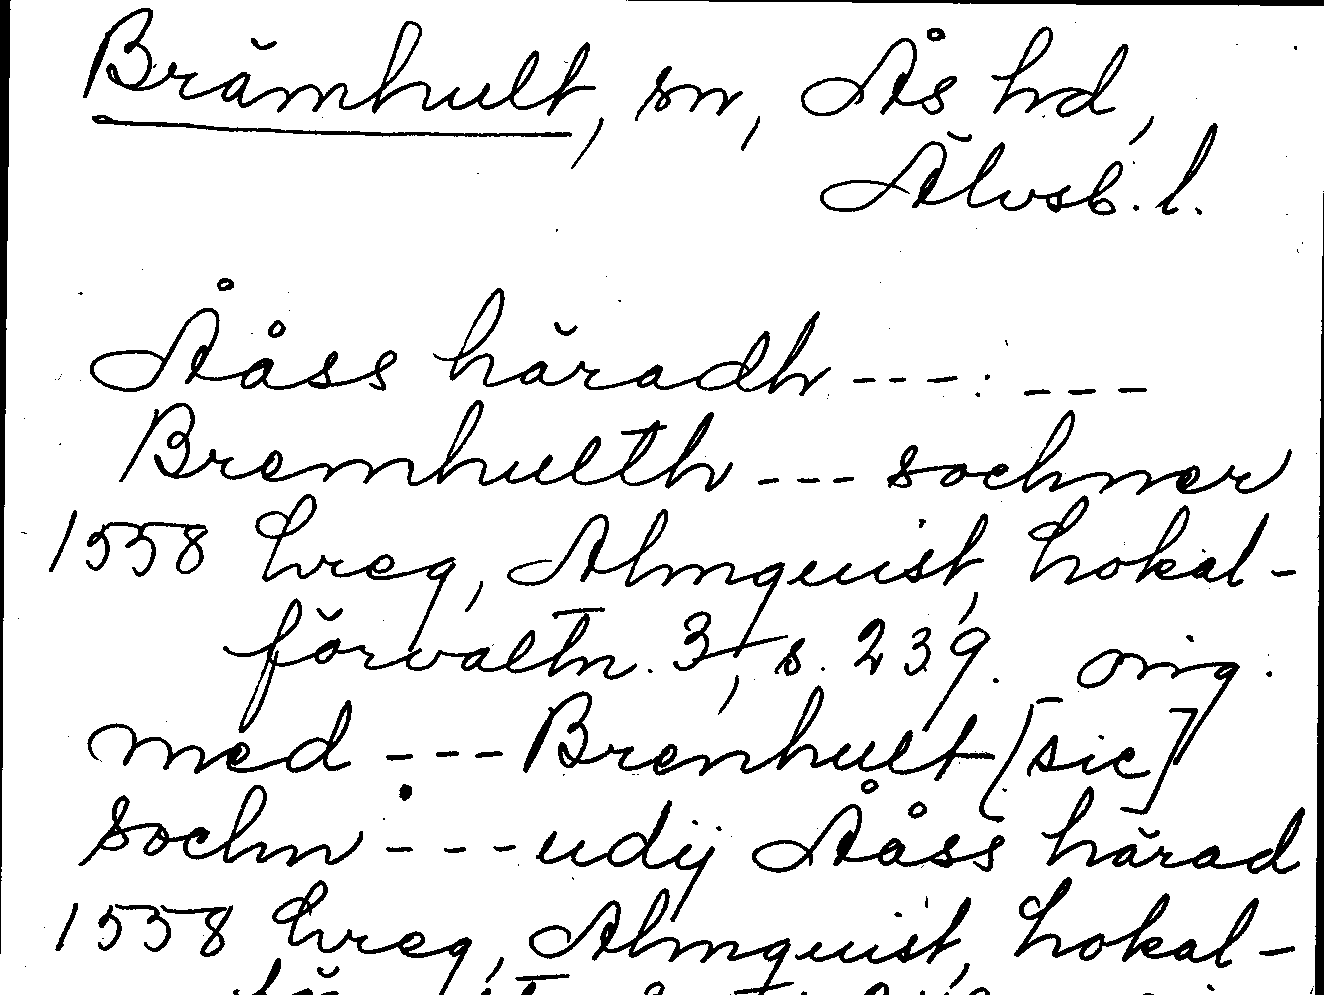 Brämhult, sn, Ås hd,
Älvsb. l.
Ååss häradh ---: ---
Bremhullth --- sochner
1558 Lreg, Almquist, Lokal-
förvaltn. 3, s. 239. orig.
med --- Brenhult [sic]
sochn --- udij Ååss härad
1558 Lreg, Almquist, Lokal-